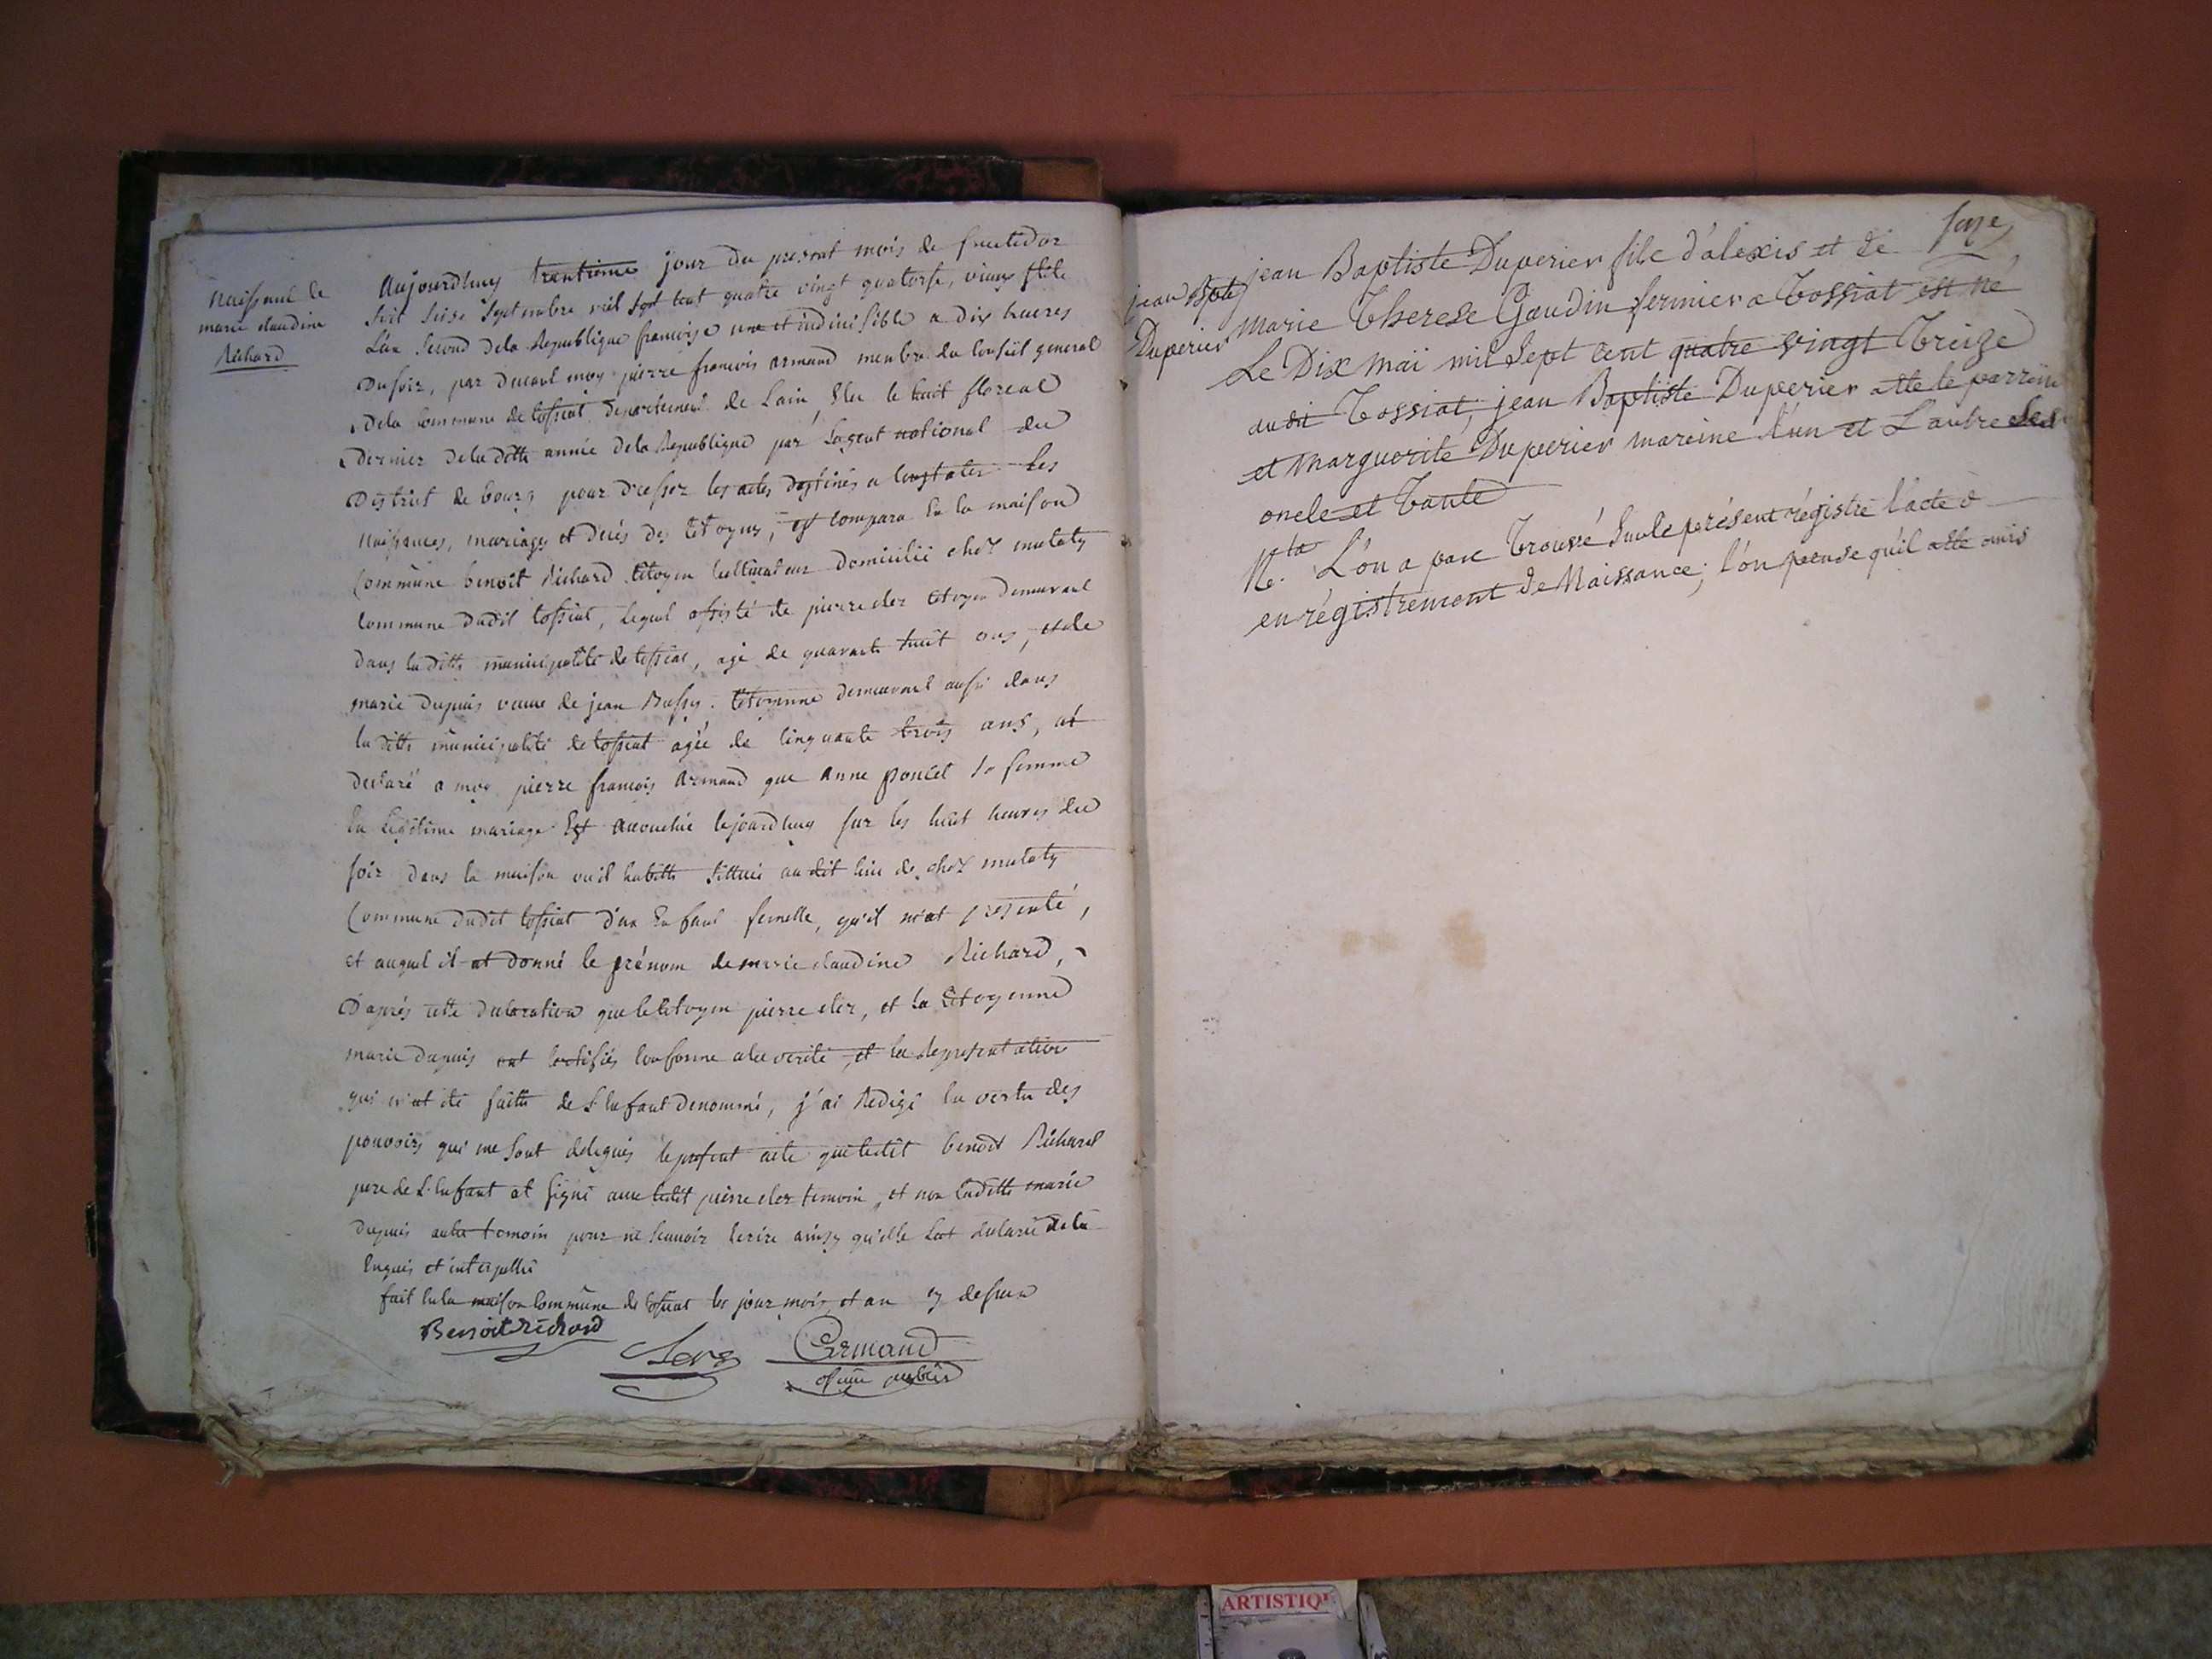 Naissance de
marie claudine
Richard
Aujourdhuy trentieme jour du present mois de fructidor
soit seize septembre mil sept cent quatre vingt quatorse, vieux stile
L'an second dela Republique francoise une et indivisible a dix heures
du soir, par devant moy pierre francois armand membre du Conseil general
dela Commune de tossiat departement de Lain, Elu le huit floreal
dernier deladitte année dela Republique par Lagent national du
District de bourg pour dresser les actes destinés a Constater les
Naissances, mariages et décés des Citoyens, est Comparu En la maison
Commune benoit Richard Citoyen Cultivateur domicilié chéz mulaty
Commune dudit tossiat, Lequel assisté de pierre clez Citoyen demeurant
dans laditte municipalité de tossiat, agé de quarante huit ans, et de
marie dupuis veuve de jean Bussy. Citoyenne demeurant aussi dans
laditte municipalité de tossiat agée de Cinquante trois ans, at
declaré a moy pierre francois armand que anne poncet sa femme
En Legitime mariage Est accouchée cejourdhuy sur les huit heures du
soir dans la maison ouil habitte sittuée audit lieu de chéz mulaty
Commune dudit tossiat d'un Enfant femelle, qu'il m'at presenté,
et auquel il at donné le prénom de marie claudine Richard,
D'aprés cette declaration que le Citoyen pierre clez, et la Citoyenne
marie dupuis ont Certifiés Conforme alaverité, et la Representation
qui m'at été faitte de L'Enfant denommé, j'ai Redigé En vertu des
pouvoirs qui me sont delegués le present acte que ledit benoit Richard
pere de L'Enfant at signé avec ledit pierre clez temoin, et non Laditte marie
dupuis autre temoin pour ne scavoir Ecrire ainsy qu'elle Lat declaré de ce
Enquis et interpellé
fait En la maison Commune de tossiat les jour mois et an cy dessus
Benoit richard
Armand
officier public
jean Bpte
Duperier
jean Baptiste Duperier fils d'alexis et de
Marie Therese Gaudin fermier a Tossiat est né
Le Dix Mai mil Sept Cent quatre vingt Treize
audit Tossiat, jean Baptiste Duperier a été le parrein
et Marguerite Duperier mareine l'un et L'autre Ses
oncle et Tante
Nta. L'on a pas Trouvé Sur le présent régistre l'acte d
enrégistrement de Naissance; l'on pense qu'il a été omis
ARTISTIQ